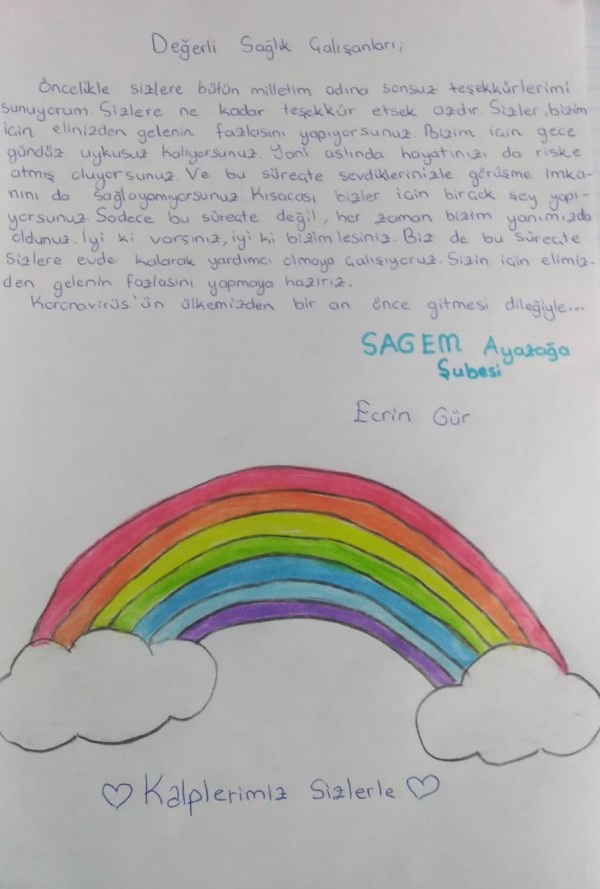 Değerli Sağlık Çalışanları;
Öncelikle sizlere bütün milletim adına sonsuz teşekkürlerimi
sunuyorum. Sizlere ne kadar teşekkür etsek azdır. Sizler, bizim
için elinizden gelenin fazlasını yapıyorsunuz. Bizim için gece
gündüz uykusuz kalıyorsunuz. Yani aslında hayatınızı da riske
atmış oluyorsunuz. Ve bu süreçte sevdiklerinizle görüşme imka-
nını da sağlayamıyorsunuz. Kısacası bizler için birçok şey yapı-
yorsunuz. Sadece bu süreçte değil, her zaman bizim yanımızda
oldunuz. İyi ki varsınız, iyi ki bizimlesiniz. Biz de bu süreçte
sizlere evde kalarak yardımcı olmaya çalışıyoruz. Sizin için elimiz-
den gelenin fazlasını yapmaya hazırız.
Koronavirüs'ün ülkemizden bir an önce gitmesi dileğiyle...
SAGEM Ayazağa
Şubesi
Ecrin Gür
♡ Kalplerimiz Sizlerle ♡